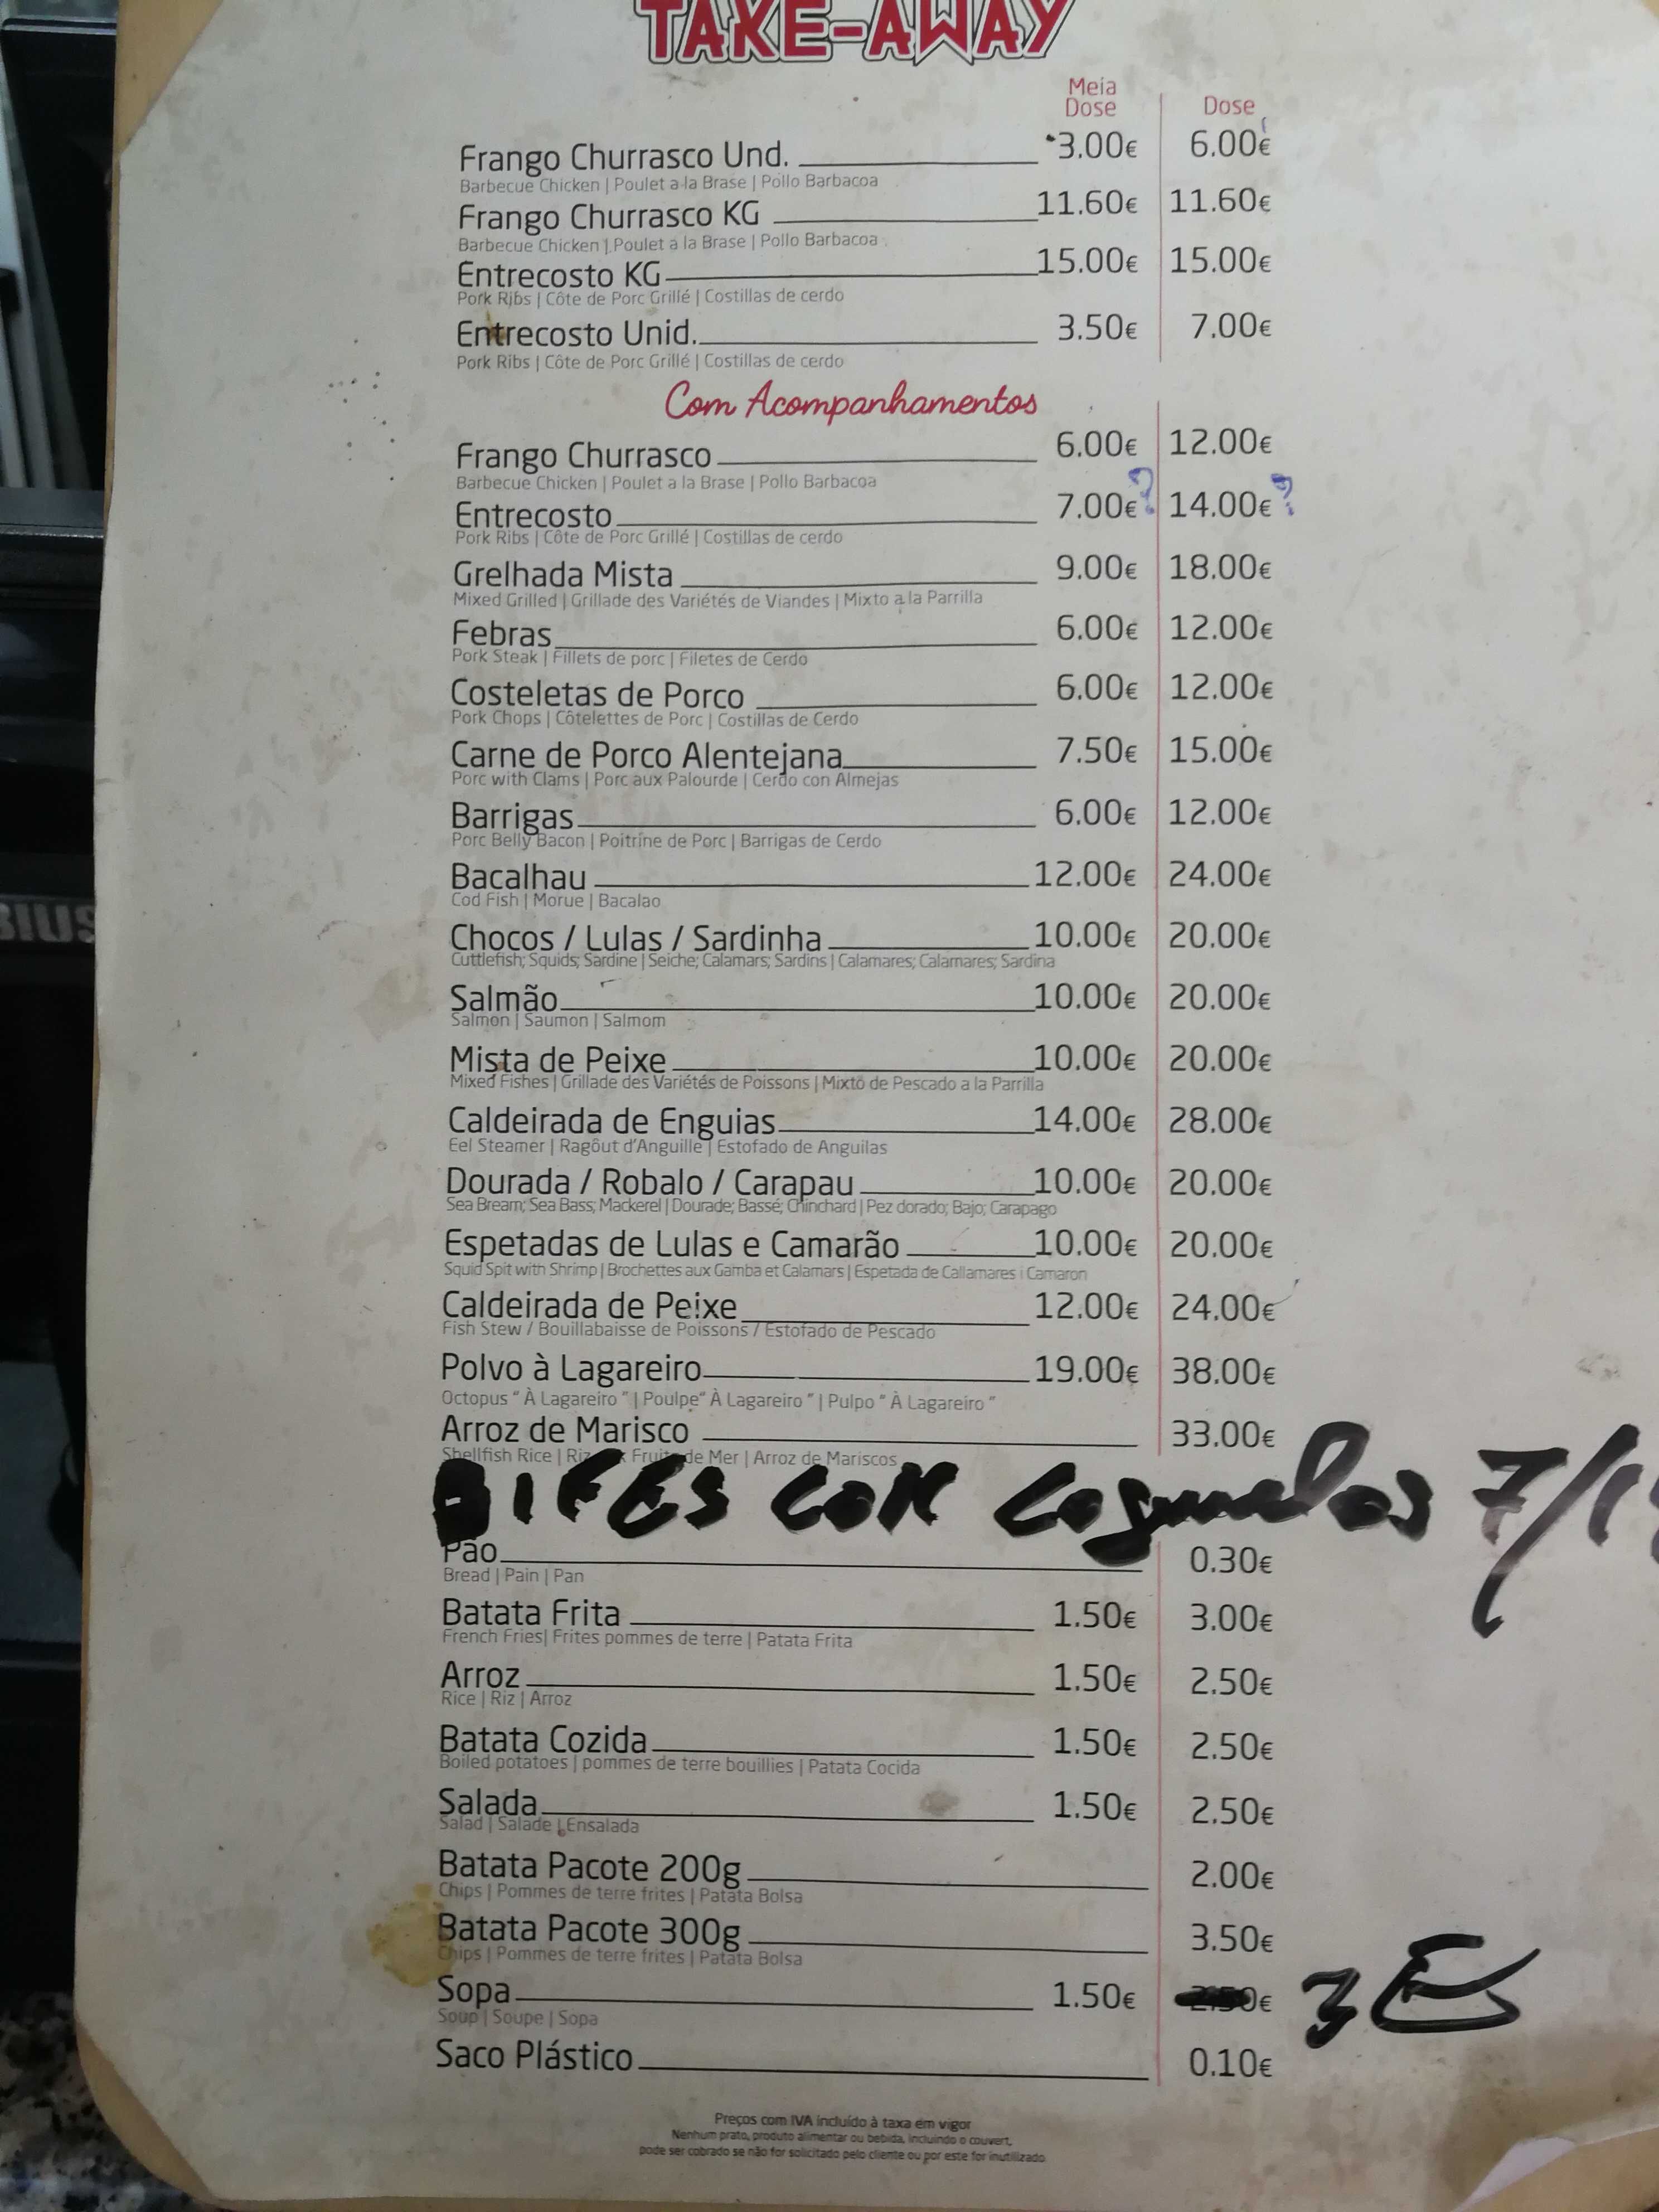 TAKE-AWAY
Meia Dose Dose
Frango Churrasco Und. 3.00€ 6.00€
Barbecue Chicken | Poulet a la Brase | Pollo Barbacoa
Frango Churrasco KG 11.60€ 11.60€
Barbecue Chicken | Poulet a la Brase | Pollo Barbacoa
Entrecosto KG 15.00€ 15.00€
Pork Ribs | Côte de Porc Grillé | Costillas de cerdo
Entrecosto Unid. 3.50€ 7.00€
Pork Ribs | Côte de Porc Grillé | Costillas de cerdo
Com Acompanhamentos
Frango Churrasco 6.00€ 12.00€
Barbecue Chicken | Poulet a la Brase | Pollo Barbacoa
Entrecosto 7.00€? 14.00€?
Pork Ribs | Côte de Porc Grillé | Costillas de cerdo
Grelhada Mista 9.00€ 18.00€
Mixed Grilled | Grillade des Variétés de Viandes | Mixto a la Parrilla
Febras 6.00€ 12.00€
Pork Steak | Fillets de porc | Filetes de Cerdo
Costeletas de Porco 6.00€ 12.00€
Pork Chops | Côtelettes de Porc | Costillas de Cerdo
Carne de Porco Alentejana 7.50€ 15.00€
Porc with Clams | Porc aux Palourde | Cerdo con Almejas
Barrigas 6.00€ 12.00€
Porc Belly Bacon | Poitrine de Porc | Barrigas de Cerdo
Bacalhau 12.00€ 24.00€
Cod Fish | Morue | Bacalao
Chocos / Lulas / Sardinha 10.00€ 20.00€
Cuttlefish; Squids; Sardine | Seiche; Calamars; Sardins | Calamares; Calamares; Sardina
Salmão 10.00€ 20.00€
Salmon | Saumon | Salmom
Mista de Peixe 10.00€ 20.00€
Mixed Fishes | Grillade des Variétés de Poissons | Mixto de Pescado a la Parrilla
Caldeirada de Enguias 14.00€ 28.00€
Eel Steamer | Ragôut d'Anguille | Estofado de Anguilas
Dourada / Robalo / Carapau 10.00€ 20.00€
Sea Bream; Sea Bass; Mackerel | Dourade; Bassé; Chinchard | Pez dorado; Bajo; Carapago
Espetadas de Lulas e Camarão 10.00€ 20.00€
Squid Spit with Shrimp | Brochettes aux Gamba et Calamars | Espetada de Callamares i Camaron
Caldeirada de Peixe 12.00€ 24.00€
Fish Stew / Bouillabaisse de Poissons / Estofado de Pescado
Polvo à Lagareiro 19.00€ 38.00€
Octopus " À Lagareiro " | Poulpe" À Lagareiro " | Pulpo " À Lagareiro "
Arroz de Marisco 33.00€
Shellfish Rice | Riz Fruits de Mer | Arroz de Mariscos
BIFES COM Cogumelos 7/1
Pão 0.30€
Bread | Pain | Pan
Batata Frita 1.50€ 3.00€
French Fries| Frites pommes de terre | Patata Frita
Arroz 1.50€ 2.50€
Rice | Riz | Arroz
Batata Cozida 1.50€ 2.50€
Boiled potatoes | pommes de terre bouillies | Patata Cocida
Salada 1.50€ 2.50€
Salad | Salade | Ensalada
Batata Pacote 200g 2.00€
Chips | Pommes de terre frites | Patata Bolsa
Batata Pacote 300g 3.50€
Chips | Pommes de terre frites | Patata Bolsa
Sopa 1.50€ 2.50€ 3 €
Soup | Soupe | Sopa
Saco Plástico 0.10€
Preços com IVA incluído à taxa em vigor
Nenhum prato, produto alimentar ou bebida, incluindo o couvert,
pode ser cobrado se não for solicitado pelo cliente ou por este for inutilizado